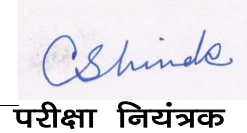 CShinde
परीक्षा नियंत्रक